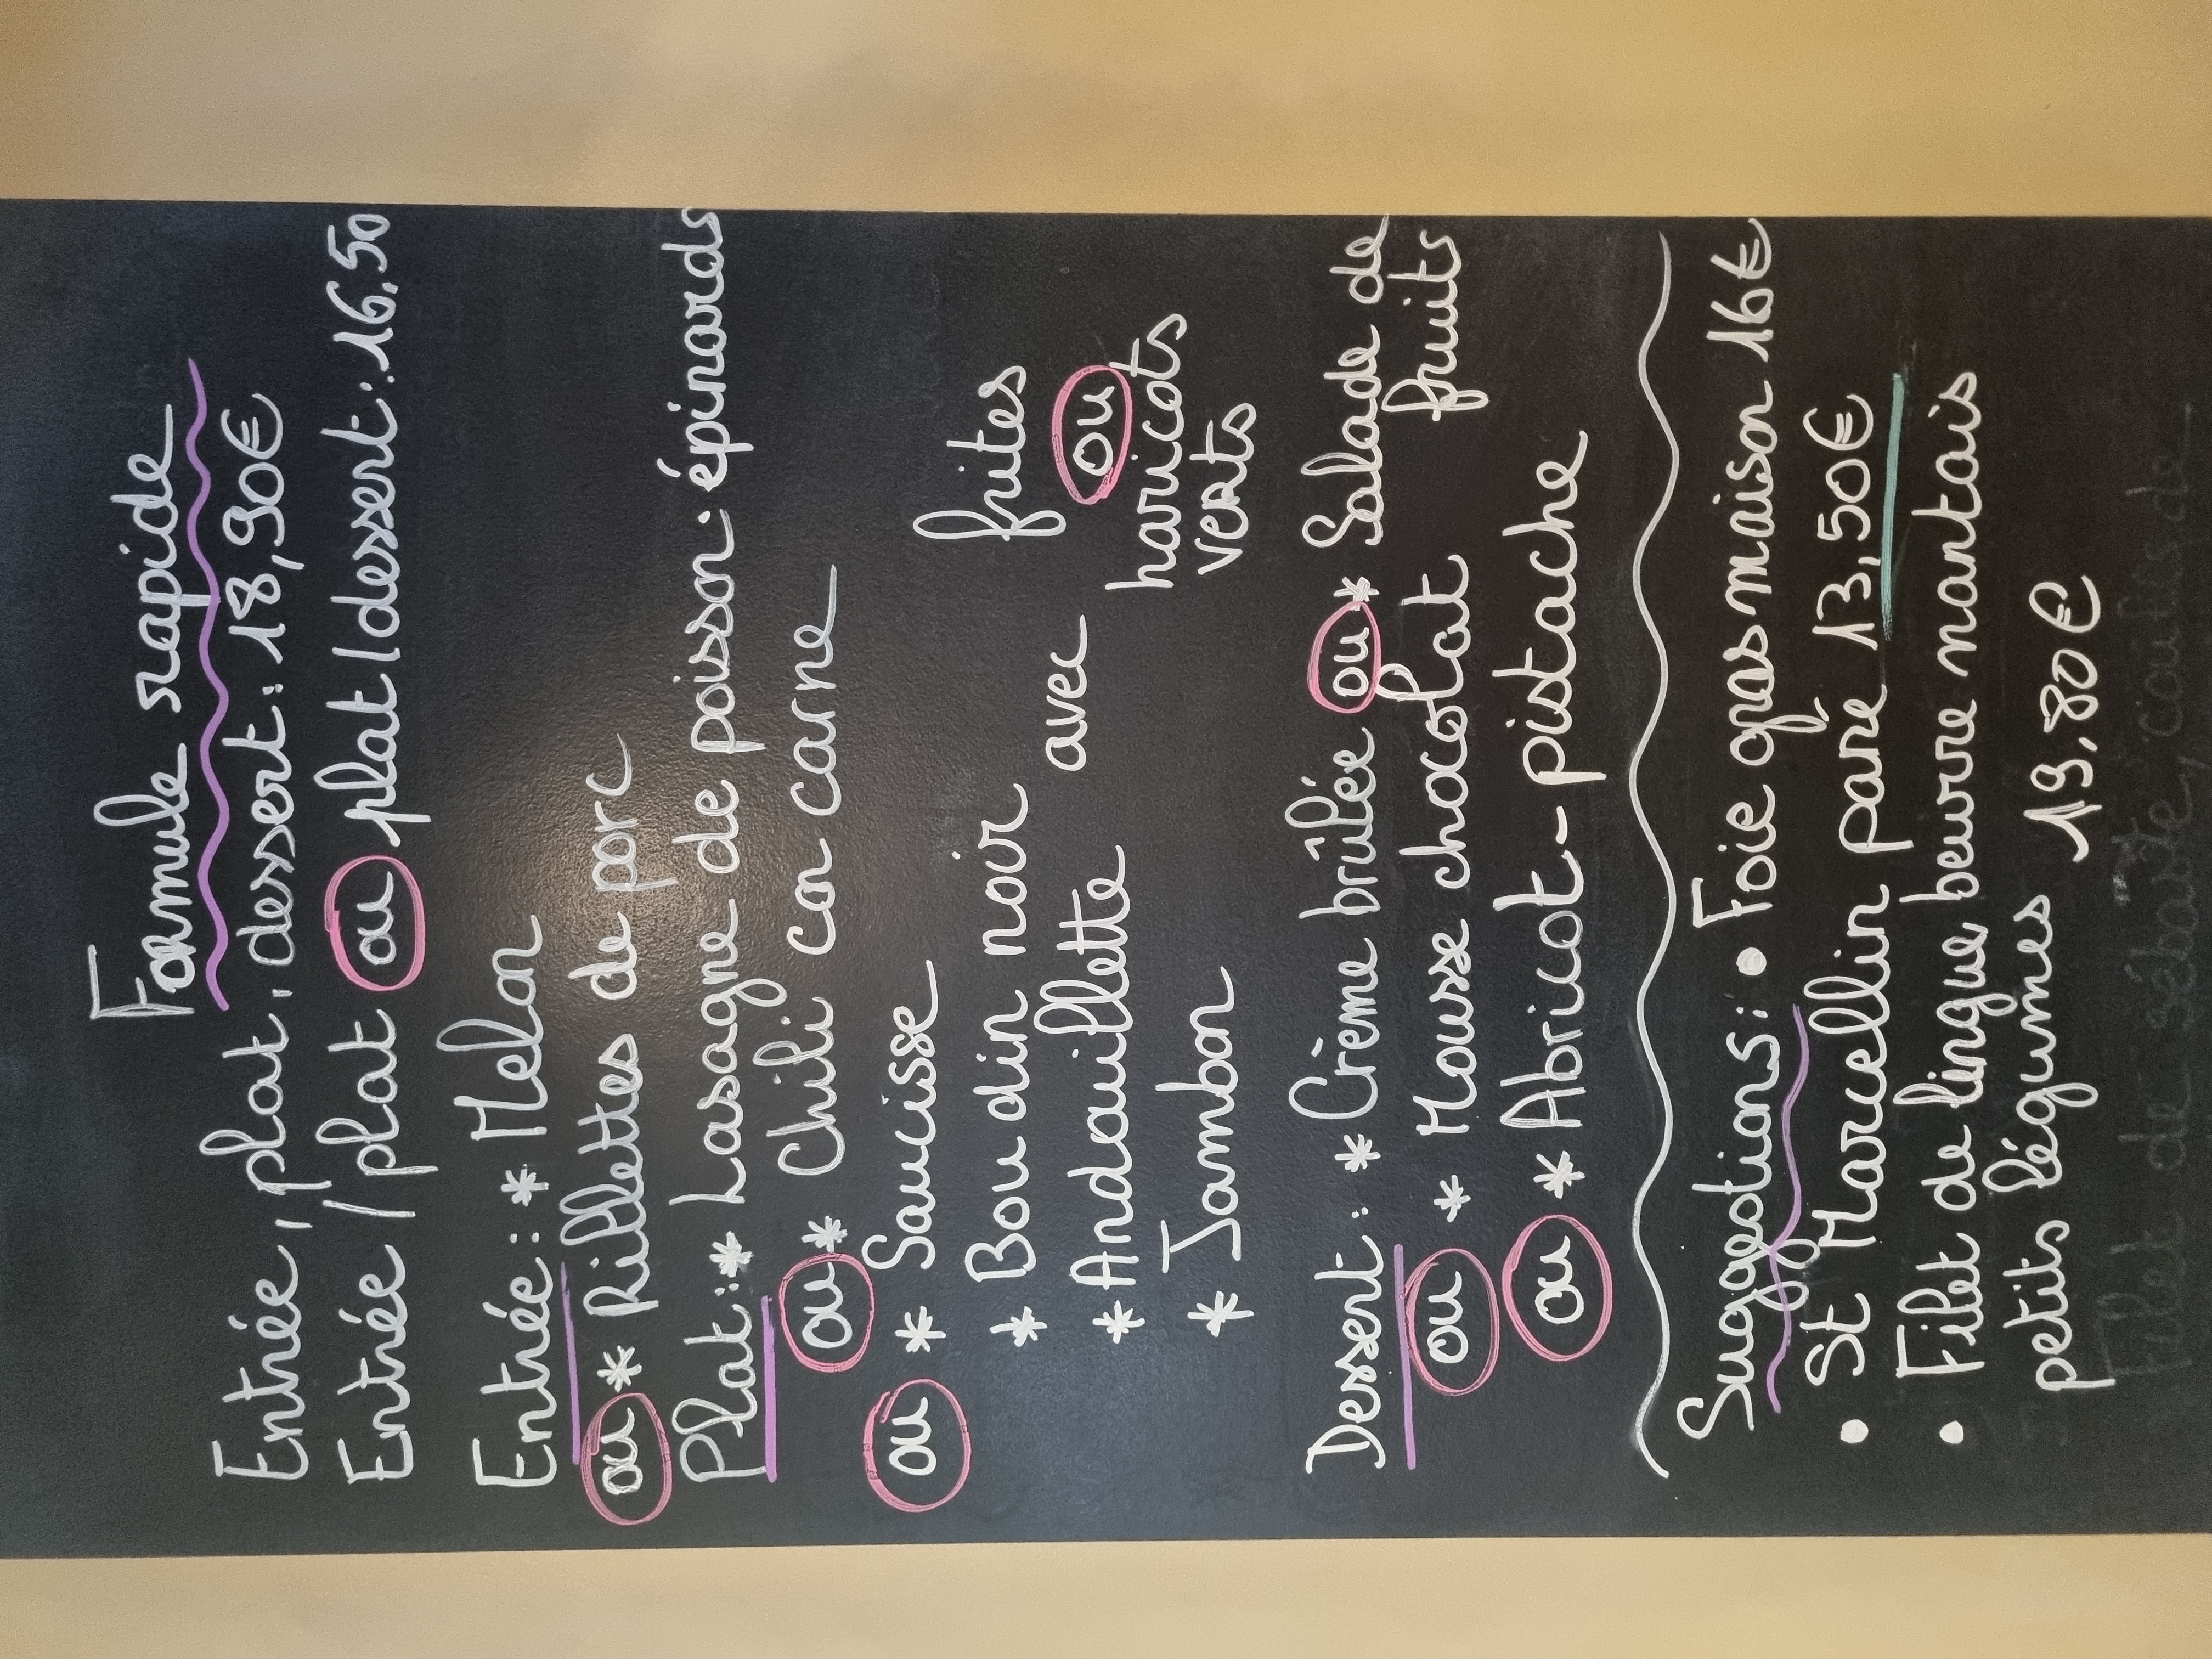 Formule rapide
Entrée, plat, dessert: 18,90€
Entrée/plat ou plat/dessert: 16,50
Entrée: * Melon
ou * Rillettes de porc
Plat: * Lasagne de poisson: épinards
ou * Chili con carne
ou * Saucisse
* Boudin noir
* Andouillette
* Jambon
avec
frites
ou
haricots
verts
Dessert: * Crème brûlée ou * Salade de
fruits
ou * Mousse chocolat
ou * Abricot-pistache
Suggestions: • Foie gras maison 16€
• St Marcellin pané 13,50€
• Filet de lingue beurre nantais
petits légumes 19,80€
Filet de sébaste, coulis de